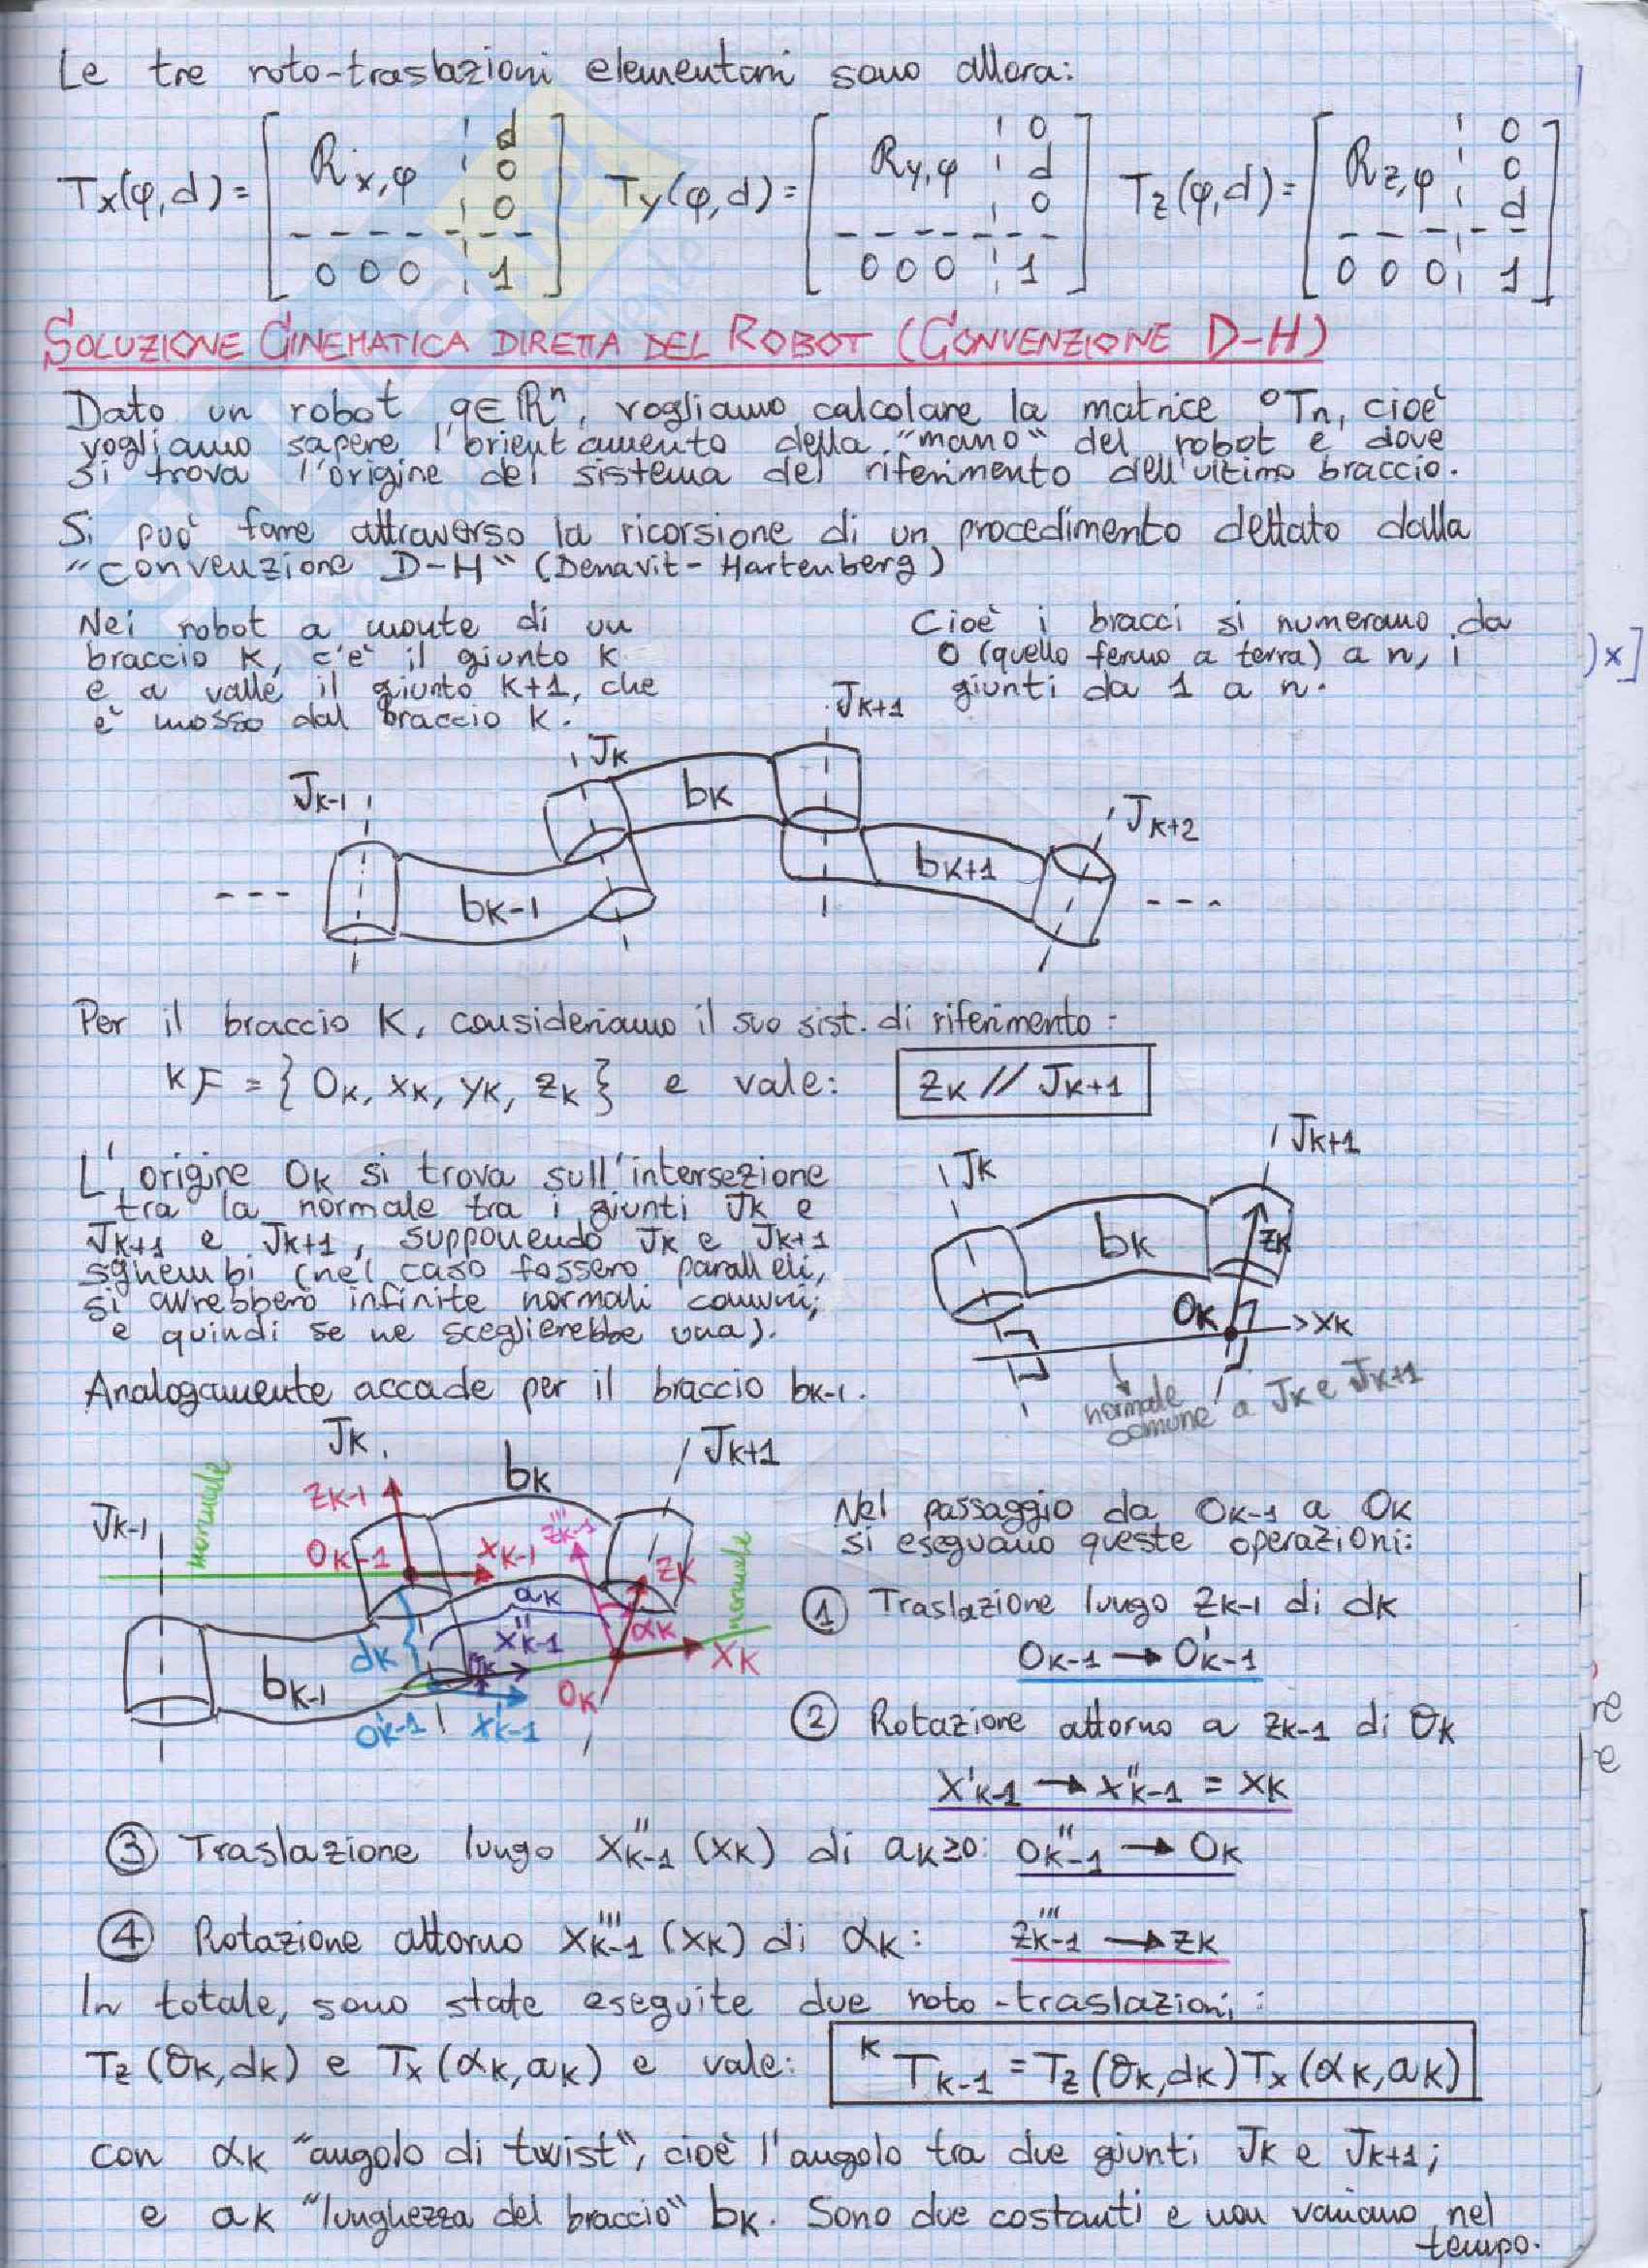 Le tre roto-traslazioni elementari sono allora:
Tx(φ,d)= [ Rx,φ | d 0 0 ; 0 0 0 | 1 ] Ty(φ,d)= [ Ry,φ | 0 d 0 ; 0 0 0 | 1 ] Tz(φ,d)= [ Rz,φ | 0 0 d ; 0 0 0 | 1 ]
SOLUZIONE CINEMATICA DIRETTA DEL ROBOT (CONVENZIONE D-H)
Dato un robot q∈ℝⁿ, vogliamo calcolare la matrice ⁰Tn, cioè
vogliamo sapere l'orientamento della "mano" del robot e dove
si trova l'origine del sistema del riferimento dell'ultimo braccio.
Si può fare attraverso la ricorsione di un procedimento dettato dalla
"convenzione D-H" (Denavit-Hartenberg)
Nei robot a monte di un
braccio K, c'è il giunto K
e a valle il giunto K+1, che
è mosso dal braccio K.
Cioè i bracci si numerano da
0 (quello fermo a terra) a n, i
giunti da 1 a n.
)x]
JK-1
JK
JK+1
JK+2
bK-1
bK
bK+1
Per il braccio K, consideriamo il suo sist. di riferimento:
ᴷF = { OK, XK, YK, ZK } e vale: ZK // JK+1
L'origine OK si trova sull'intersezione
tra la normale tra i giunti JK e
JK+1 e JK+1, supponendo JK e JK+1
sghembi (nel caso fossero paralleli,
si avrebbero infinite normali comuni,
e quindi se ne sceglierebbe una).
JK
JK+1
bK
ZK
OK
XK
normale
comune a JK e JK+1
Analogamente accade per il braccio bK-1.
JK-1
normale
JK
ZK-1
OK-1
XK-1
bK
JK+1
Z'''K-1
ZK
normale
aK
αK
X''K-1
dK
θK
XK
OK
bK-1
O'K-1
X'K-1
Nel passaggio da OK-1 a OK
si eseguano queste operazioni:
① Traslazione lungo ZK-1 di dK
OK-1 → O'K-1
② Rotazione attorno a ZK-1 di θK
X'K-1 → X''K-1 = XK
re
re
③ Traslazione lungo X''K-1 (XK) di aK≥0: O''K-1 → OK
④ Rotazione attorno X'''K-1 (XK) di αK: Z'''K-1 → ZK
In totale, sono state eseguite due roto-traslazioni:
Tz(θK,dK) e Tx(αK,aK) e vale: ᴷTK-1 = Tz(θK,dK)Tx(αK,aK)
con αK "angolo di twist", cioè l'angolo tra due giunti JK e JK+1;
e aK "lunghezza del braccio" bK. Sono due costanti e non variano nel
tempo.